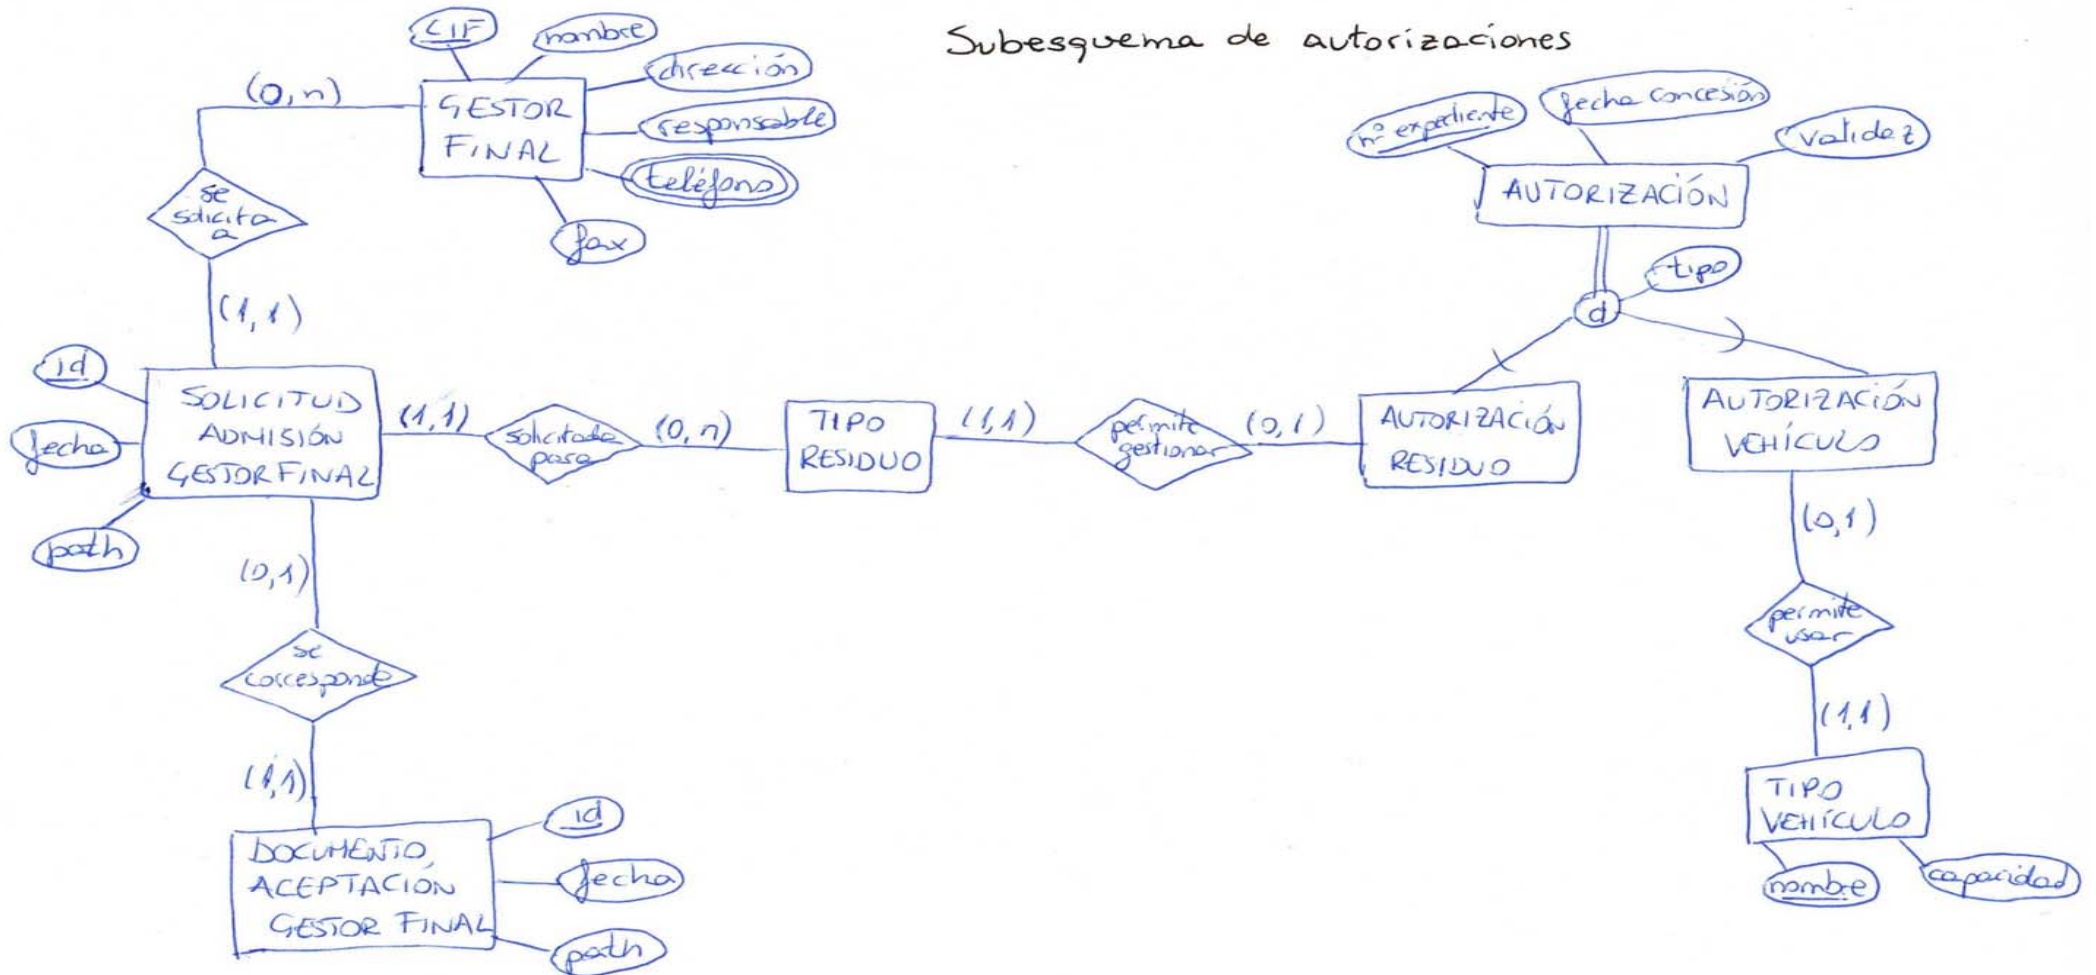 Subesquema de autorizaciones
CIF
nombre
dirección
responsable
teléfono
fax
GESTOR
FINAL
(0,n)
se
solicita
a
(1,1)
id
fecha
path
SOLICITUD
ADMISIÓN
GESTOR FINAL
(1,1)
solicitada
para
(0,n)
TIPO
RESIDUO
(1,1)
permite
gestionar
(0,1)
AUTORIZACIÓN
RESIDUO
nº expediente
fecha concesión
validez
AUTORIZACIÓN
tipo
d
AUTORIZACIÓN
VEHÍCULO
(0,1)
permite
usar
(1,1)
TIPO
VEHÍCULO
nombre
capacidad
(0,1)
se
corresponde
(1,1)
DOCUMENTO
ACEPTACIÓN
GESTOR FINAL
id
fecha
path